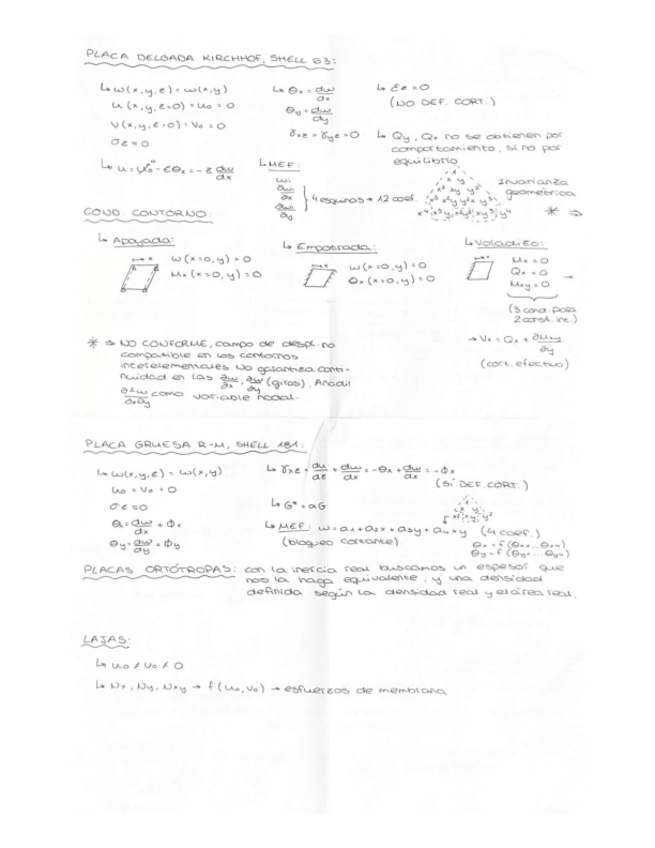 PLACA DELGADA KIRCHHOF, SHELL 63:
↳ w(x,y,z) = w(x,y)
u(x,y,z=0) = u₀ = 0
v(x,y,z=0) = v₀ = 0
σz = 0
↳ u = u₀ - zθx = -z dw/dx
↳ θx = dw/dx
θy = dw/dy
γxz = γyz = 0
↳ εz = 0
(NO DEF. CORT.)
↳ Qy, Qx no se obtienen por
comportamiento, si no por
equilibrio
↳ MEF:
wi
∂wi/∂x
∂wi/∂y
} 4 esquinas → 12 coef.
1
x y
x² xy y²
x³ x²y y²x y³
x⁴ x³y x²y² xy³ y⁴
Invarianza
geométrica
* ⇒
COND. CONTORNO:
↳ Apoyada:
→ x
w(x=0,y) = 0
Mx(x=0,y) = 0
↳ Empotrada:
→ x
w(x=0,y) = 0
θx(x=0,y) = 0
↳ Voladizo:
→ x
Mx = 0
Qx = 0
Mxy = 0
(3 cond. para
2 const. int.)
→ Vx = Qx + ∂Mxy/∂y
(cort. efectivo)
* ⇒ NO CONFORME, campo de despl. no
compatible en los contornos
interelementales. No garantiza conti-
nuidad en las ∂w/∂x, ∂w/∂y (giros). Añadir
∂²w/∂x∂y como variable nodal.
PLACA GRUESA R-M, SHELL 181:
↳ w(x,y,z) = w(x,y)
u₀ = v₀ = 0
σz = 0
θx = dw/dx + ϕx
θy = dw/dy + ϕy
↳ γxz = du/dz + dw/dx = -θx + dw/dx = -ϕx
(SÍ DEF. CORT.)
↳ G* = αG
↳ MEF: w = a₁+a₂x+a₃y+a₄xy (4 coef.)
(bloqueo cortante)
1
x y
x² xy y²
θx = f(θx₁...θx₄)
θy = f(θy₁...θy₄)
PLACAS ORTÓTROPAS: con la inercia real buscamos un espesor que
nos la haga equivalente, y una densidad
definida según la densidad real y el área real.
LAJAS:
↳ u₀ ≠ v₀ ≠ 0
↳ Nx, Ny, Nxy → f(u₀,v₀) → esfuerzos de membrana